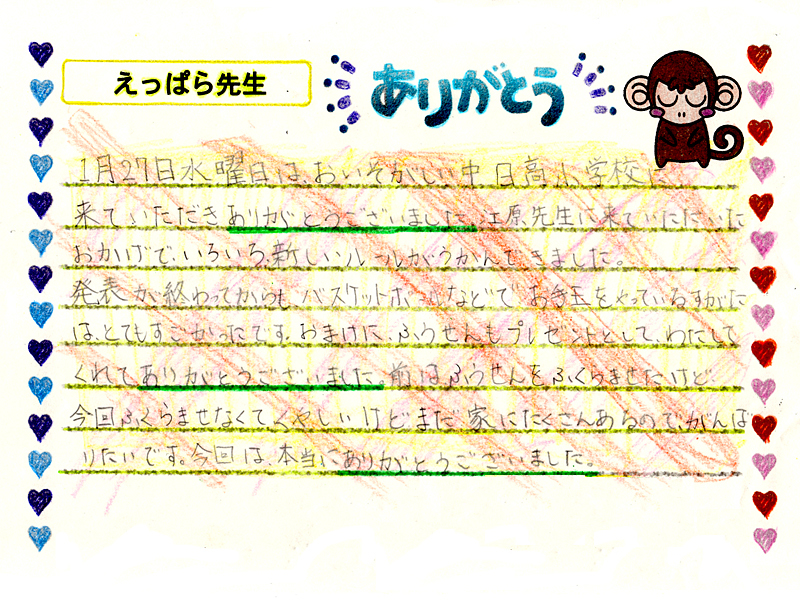 えっぱら先生
ありがとう
1月27日水曜日は、おいそがしい中日高小学校に
来ていただきありがとうございました。江原先生に来ていただいた
おかげで、いろいろ新しいルールがうかんできました。
発表が終わってからも、バスケットボールなどでお手玉をやっているすがた
は、とてもすごかったです。おまけに、ふうせんもプレゼントとして、わたして
くれてありがとうございました。前はふうせんをふくらませたけど、
今回ふくらませなくてくやしいけどまだ家にたくさんあるので、がんば
りたいです。今回は、本当にありがとうございました。